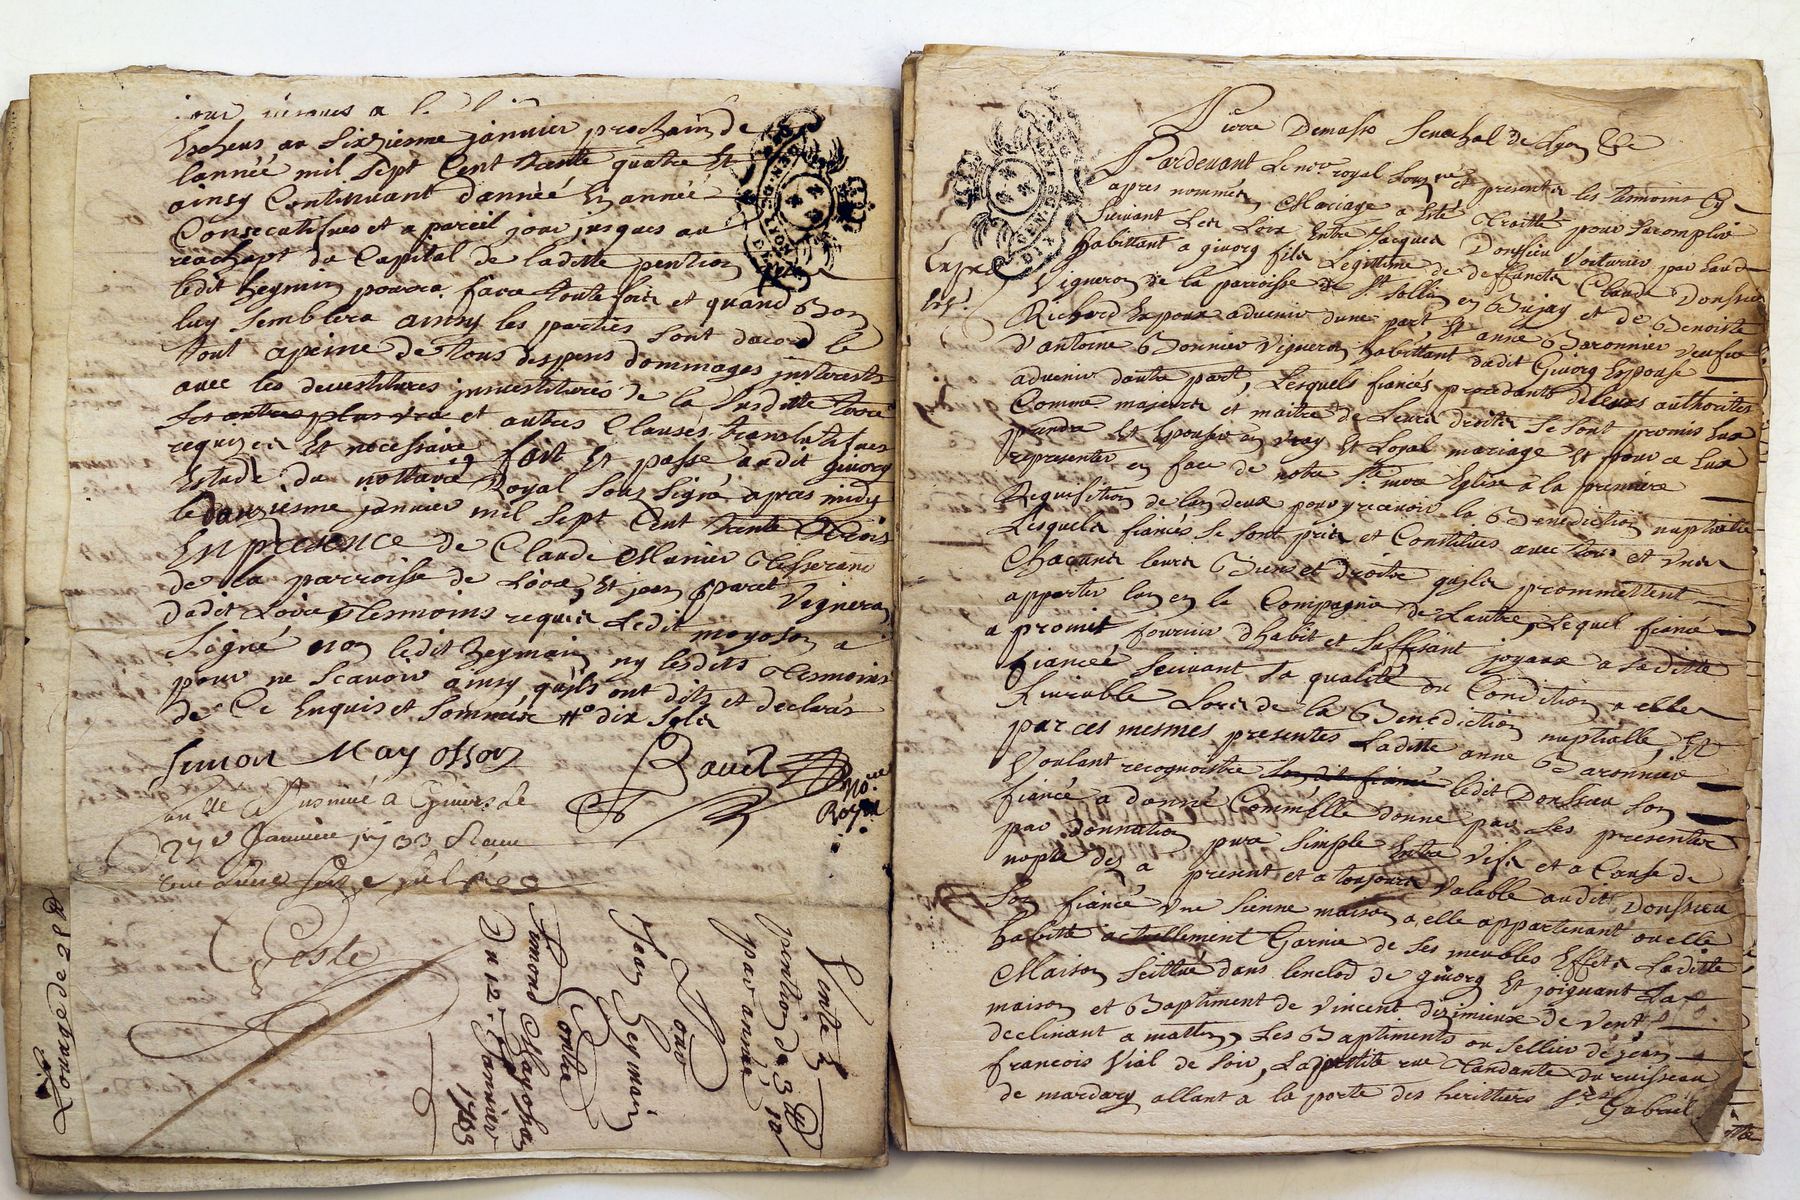 Escheus au Sixziesme janvier prochain de
lannée mil Sept Cent trante quatre Et
ainsy Continuant dannéé En année
Consecutifues et a pareil jour jusques au
reachapt du Capital de laditte pention
ledit Zeymain pourra faire toute fois et quand Bon
luy Semblera ainsy les parties sont dacord le
tout apeine de tous despens dommages interests
avec les devestitures investitures de la Susditte
et autres Clauses translatifues
requizes Et necessaires, fait Et passé audit givorg
Estude du nottaire Royal Sous Signé apres midy
le douziesme janvier mil Sept Cent trante Trois
En presence de Claude Munier Tesserand
de la parroisse de Loire, Et jean paret Vigneron
dudit Loire Tesmoins requis Ledit moyoson a
Signé non ledit Zeymain ny lesdits Tesmoins
pour ne Scavoir ainsy quils ont dits et declarés
de Ce Enquis et Sommés dix Sols
Simon Mayosson
Bouet
No.re
Royal
27e Janvier 1733
Coste
Louage de 28
Vente
pention de 3
par année
Pour
Jean Zeymain
Contre
Simond Mayosson
Du 12e Janvier
1733
DE LYON
GEN.
Pierre Demasso Senechal de Lyon &c
Pardevant Le nore royal Sousné et presents les tamoins Cy
apres nommés, Mariage a Esté Traitté pour Sacomplir
Suivant Les Loix Entre Jacques Donssieu Voiturier par Eaud
habittant a givorg fils Legittime de deffuncts Claude Donssieu
Vigneron de la parroisse de St. Sollin en Bujay et de Benoiste
Richard Espoux advenir dune part Et anne Baronnier veufve
d'antoine Bonnier Vigneron habittant dudit Givorg Espouse
advenir dautre part, Lesquels fiancés procedants de leurs authorités
Comme majeurs et maitre de Leurs droits Se Sont promis Eux
prandre Et Epouser en vray Et Loyal mariage Et pour ce Eux
representer en face de notre Ste. mere Eglise a la premiere
Requisition de lun deux pour y recevoir la Benediction nuptialle
Lesquels fiancés Se Sont pris et Constitués avec tous et Uns
Chacuns leurs Biens et droits quils prommettent
apporter lun en la Compagnie de Lautre, Lequel fiancé
a promit fournir dhabit et Suffisant joyaux a Saditte
fiancéé Suivant Sa qualité ou Condition a elle
Survable Lors de la Benediction nuptialle, Et
par ces mesmes presentes Laditte anne Baronnier
Voulant recognoistre ledit Donssieu Son
fiancé a donné Comme elle donne par Les presentes
par donnation pure Simple Entre Vifs et a Cause de
nopte des a present et a toujours Valable audit Donssieu
Son fiancé Une Sienne maison a elle appartenant ou elle
habitte actuellement Garnie de Ses meubles Effets Laditte
Maison Scittuéé dans lenclos de givorg Et joignant La
maison et Baptiment de Vincent dizimieux de vent,
declinant a mattin, Les Baptiments ou Sellier de jean
francois Vial de Soir, La petitte rue Tandante du ruisseau
de mardary allant a la porte des herittiers Sr.
Gabriel
DE LYON
GEN.
DIX